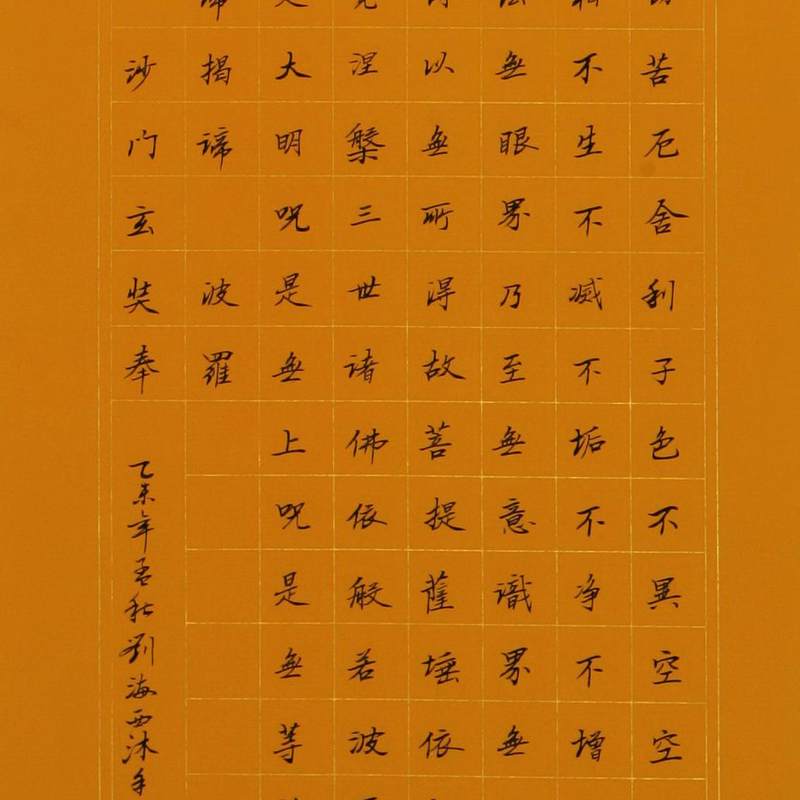 苦厄舍利子色不異空空
不生不滅不垢不净不增
無眼界乃至無意識界無
以無所得故菩提薩埵依
涅槃三世諸佛依般若波
大明呪是無上呪是無等
揭諦 波羅
沙門玄奘奉
乙未年孟秋劉海西沐手